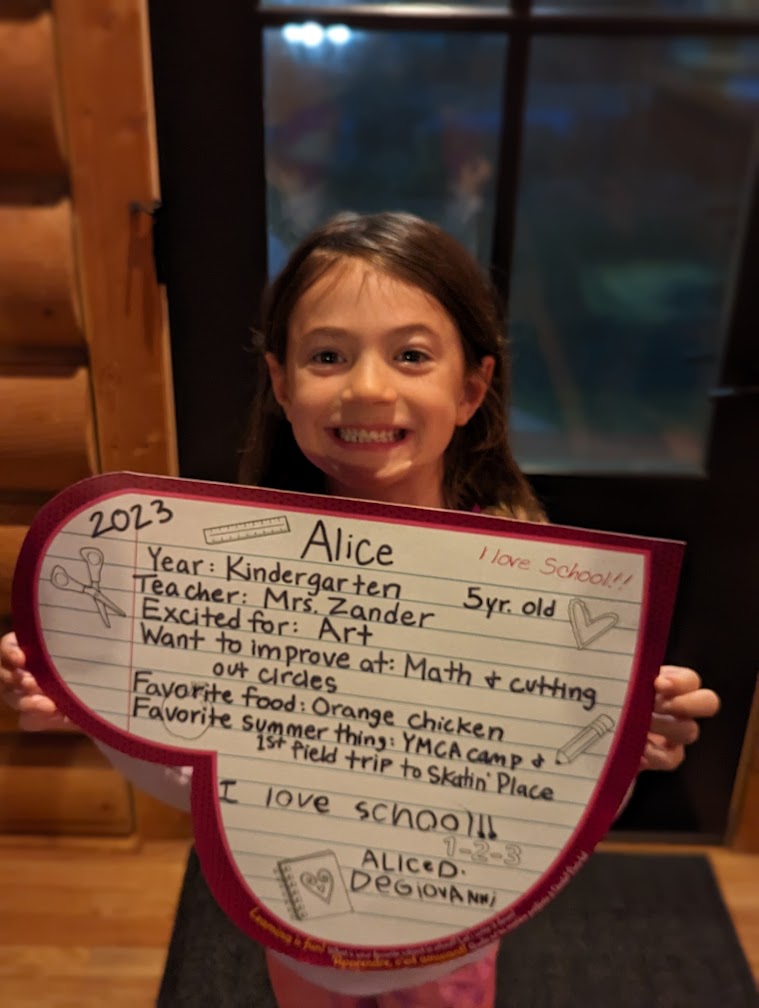 2023
Alice
I love School!!
Year: Kindergarten
5yr. old
Teacher: Mrs. Zander
Excited for: Art
Want to improve at: Math & cutting
out circles
Favorite food: Orange chicken
Favorite summer thing: YMCA camp &
1st field trip to Skatin' Place
I love school!!
1-2-3
ALICE D.
DEGIOVANNI
Learning is fun!
Apprendre, c'est amusant!